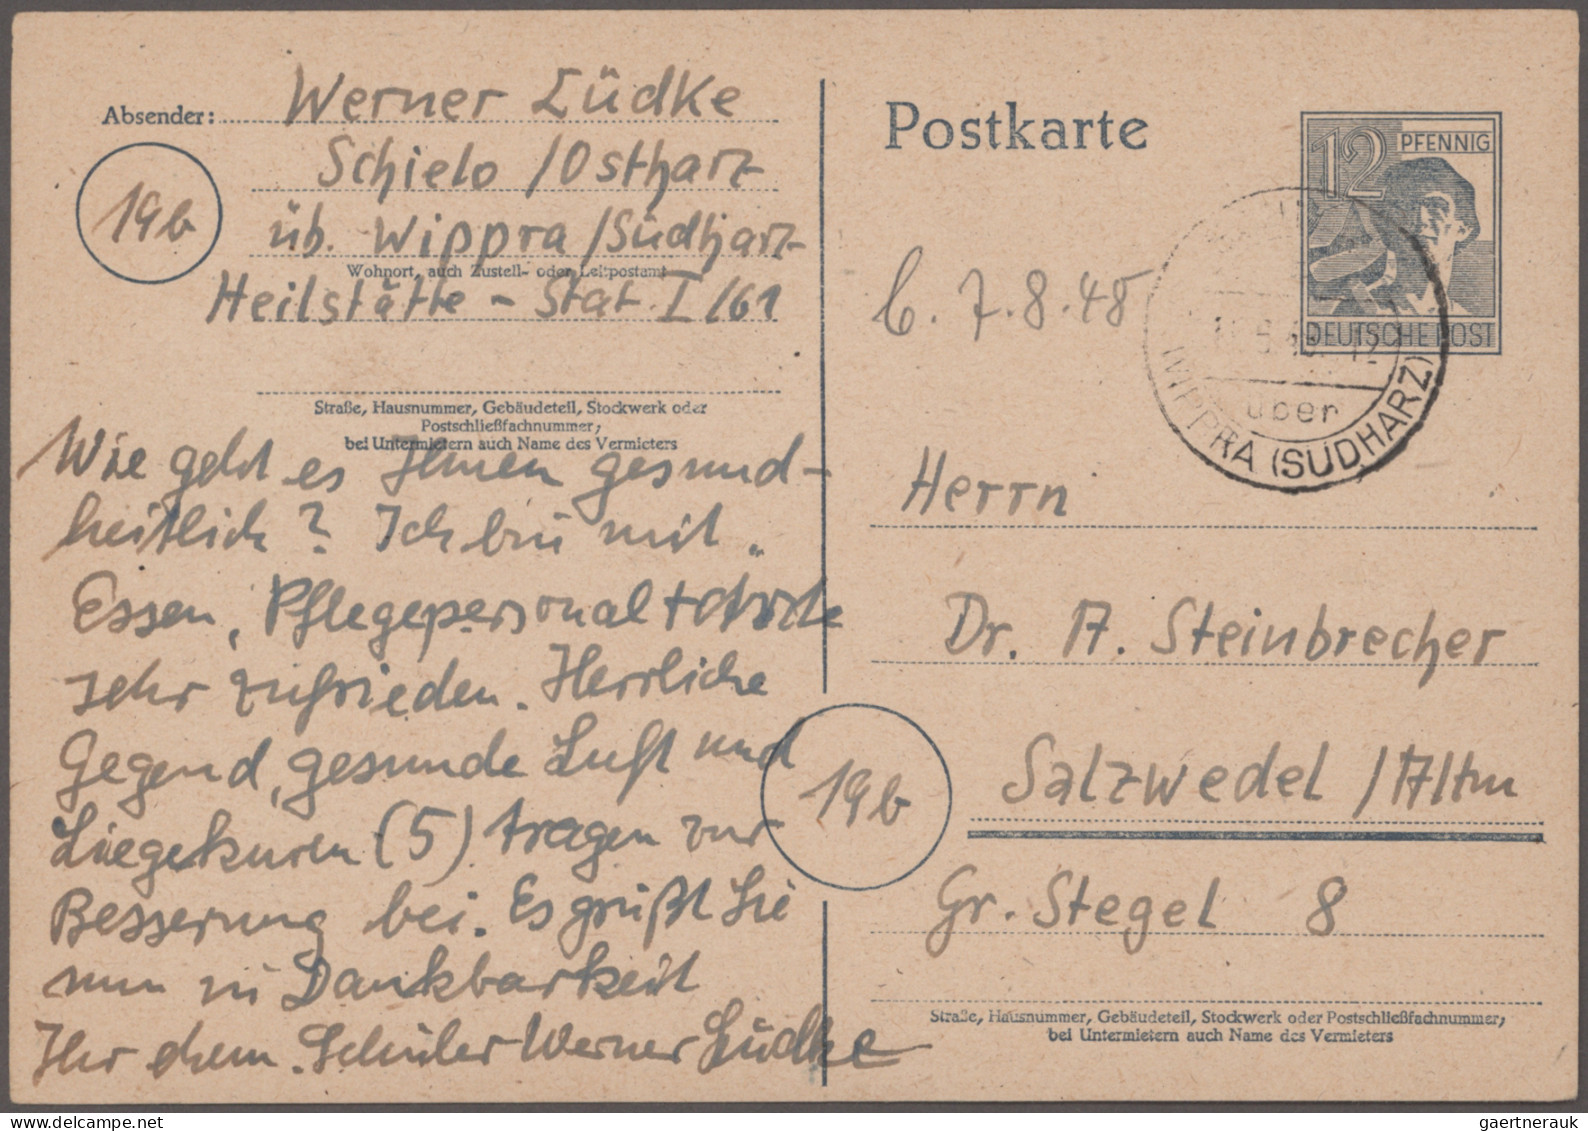 Absender: Werner Lüdke
Schielo / Ostharz
üb. Wippra / Südharz
Wohnort, auch Zustell- oder Leitpostamt
Heilstätte - Stat I / 61
19b
Straße, Hausnummer, Gebäudeteil, Stockwerk oder
Postschließfachnummer;
bei Untermietern auch Name des Vermieters
Wie geht es Ihnen gesund-
heitlich? Ich bin mit
Essen, Pflegepersonal + Ärzte
sehr zufrieden. Herrliche
Gegend, gesunde Luft und
Liegekuren (5) tragen zur
Besserung bei. Es grüßt Sie
nun in Dankbarkeit
Ihr ehem. Schüler Werner Lüdke
Postkarte
12 PFENNIG
DEUTSCHE POST
7.8.48
über
(WIPPRA (SÜDHARZ)
Herrn
Dr. A. Steinbrecher
19b
Salzwedel / Altm
Gr. Stegel 8
Straße, Hausnummer, Gebäudeteil, Stockwerk oder Postschließfachnummer;
bei Untermietern auch Name des Vermieters
gaertnerauk